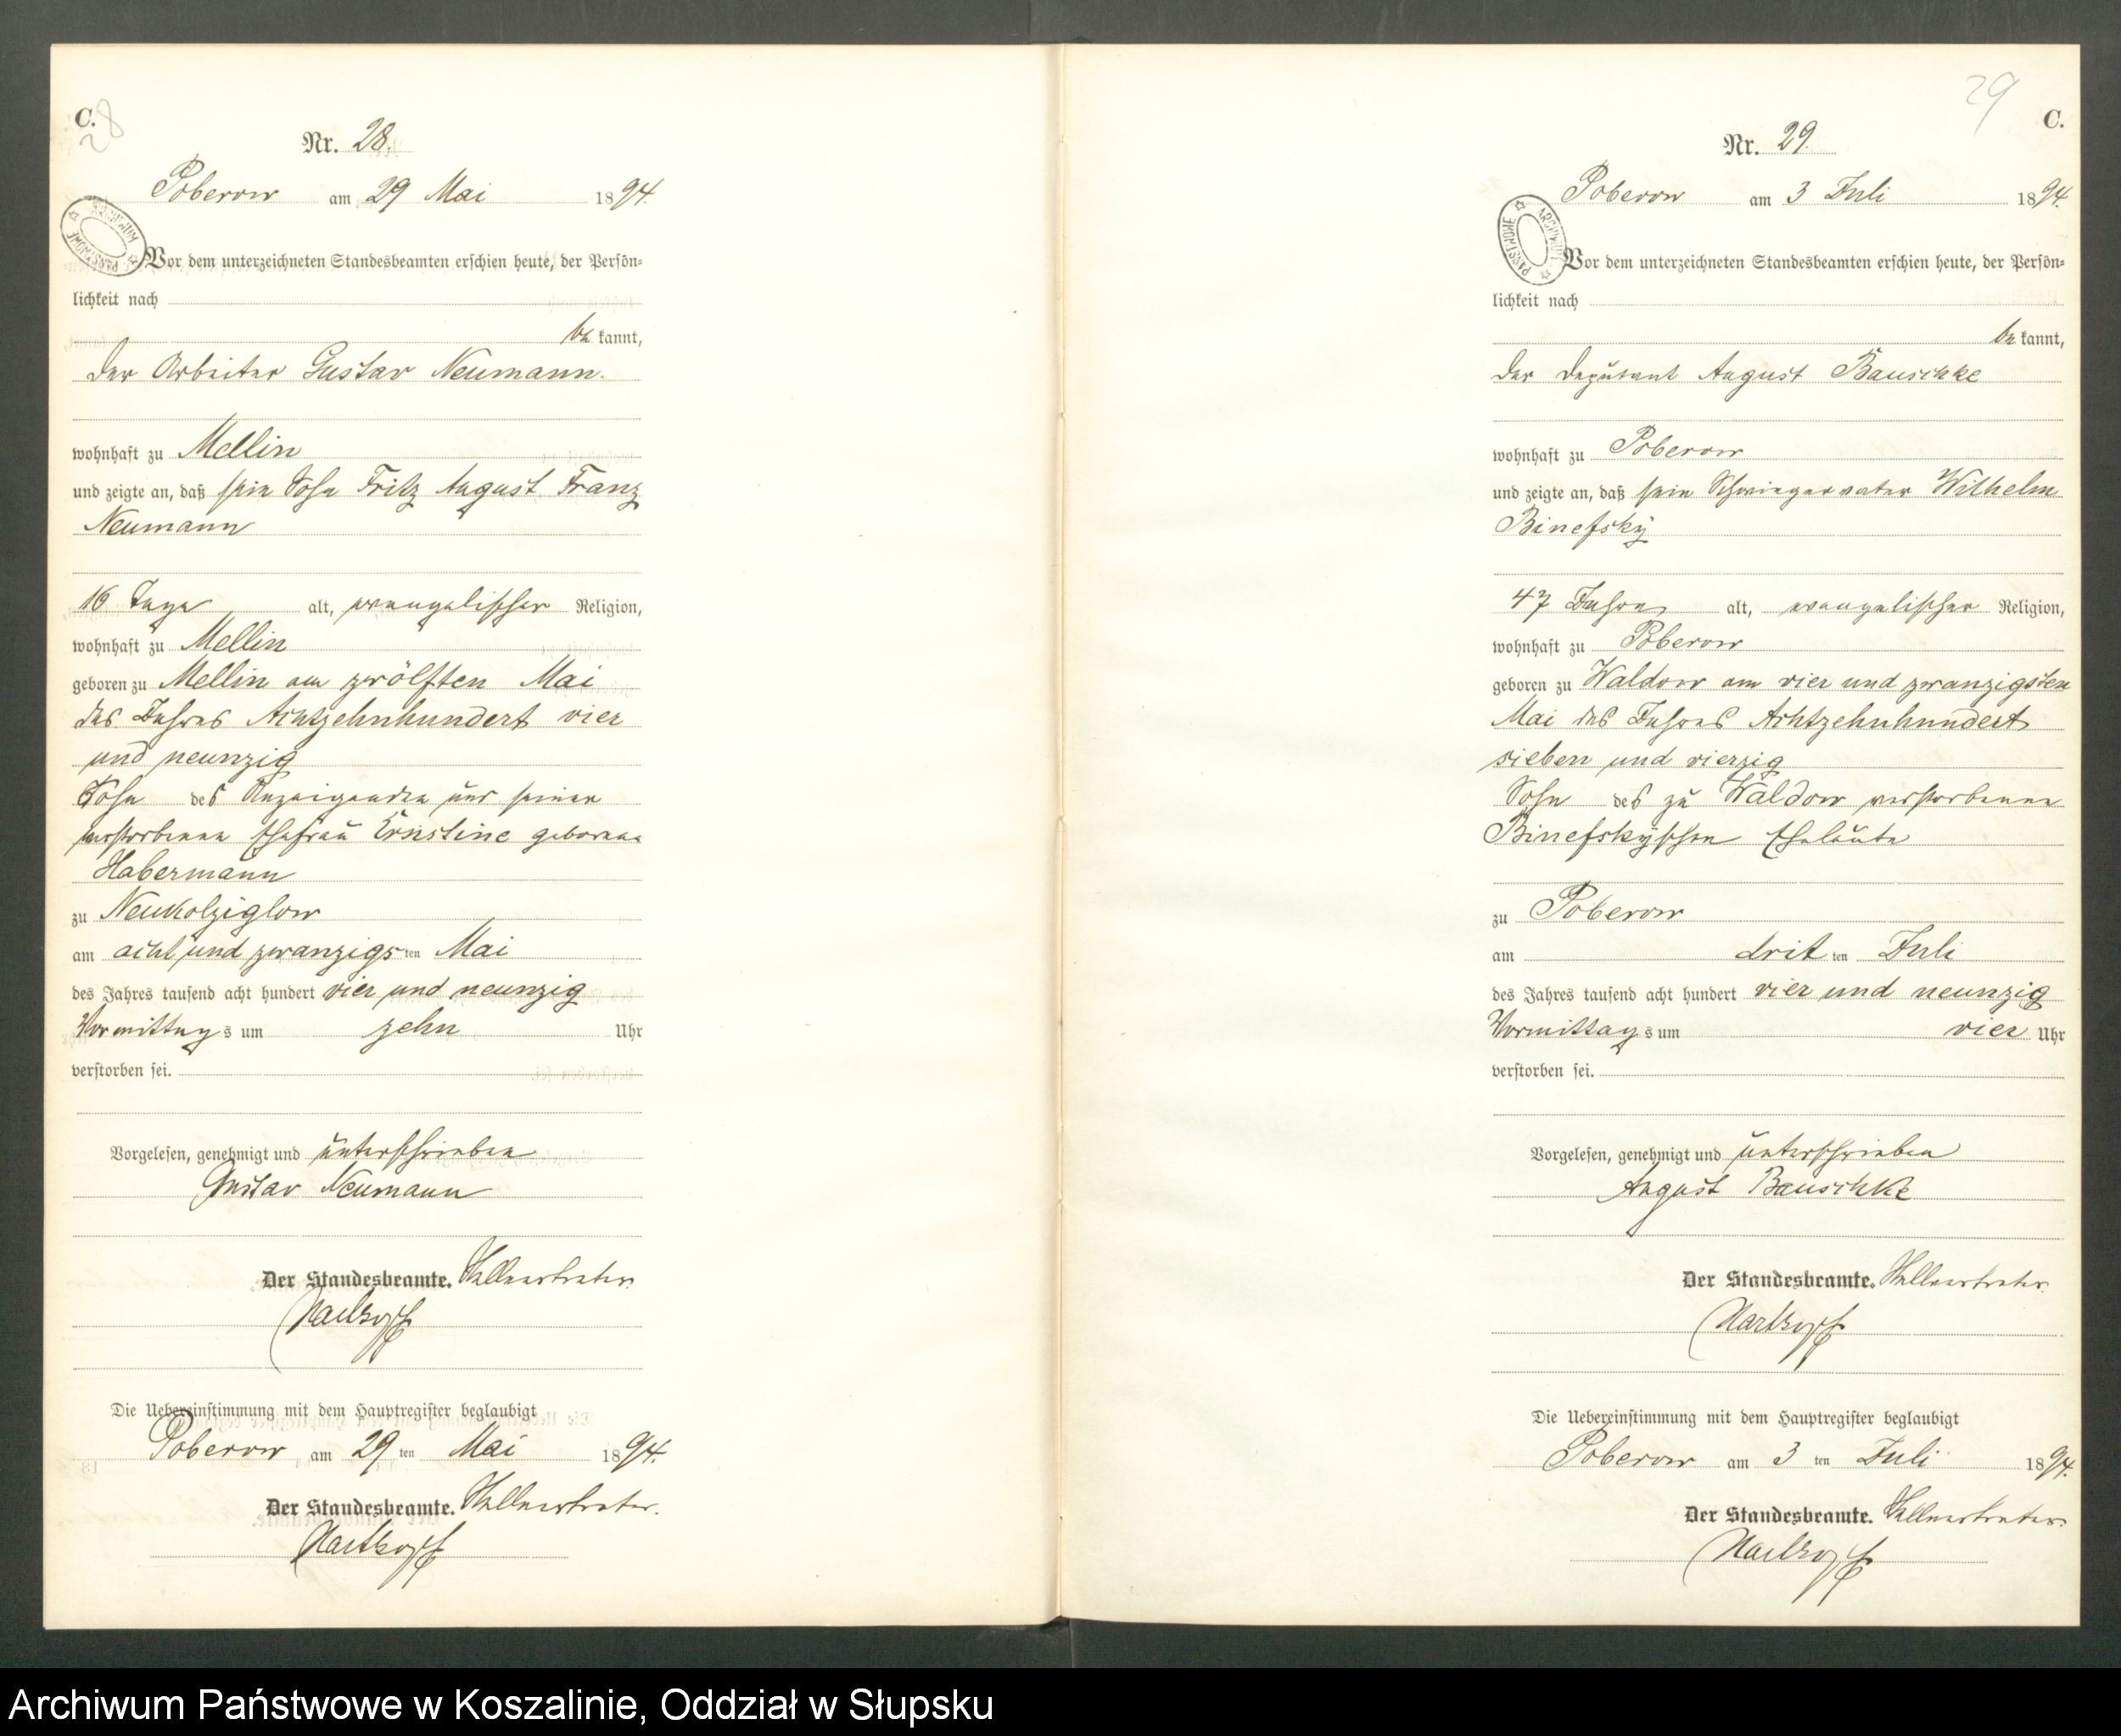 C.
28
Nr. 28.
Poberow am 29 Mai 1894.
ARCHIWUM PAŃSTWOWE
Vor dem unterzeichneten Standesbeamten erschien heute, der Persön-
lichkeit nach
be kannt,
der Arbeiter Gustav Neumann.
wohnhaft zu Mellin
und zeigte an, daß sein Sohn Fritz August Franz
Neumann
16 Tage alt, evangelischer Religion,
wohnhaft zu Mellin
geboren zu Mellin am zwölften Mai
des Jahres Achtzehnhundert vier
und neunzig
Sohn des Anzeigenden und seiner
verstorbenen Ehefrau Ernstine geborene
Habermann
zu Neukolziglow
am acht und zwanzigs ten Mai
des Jahres tausend acht hundert vier und neunzig
Vormittag s um zehn Uhr
verstorben sei.
Vorgelesen, genehmigt und unterschrieben
Gustav Neumann
Der Standesbeamte. Stellvertreter.
Hartkopf
Die Uebereinstimmung mit dem Hauptregister beglaubigt
Poberow am 29 ten Mai 1894.
Der Standesbeamte. Stellvertreter.
Hartkopf
29
C.
Nr. 29.
Poberow am 3 Juli 1894.
ARCHIWUM PAŃSTWOWE
Vor dem unterzeichneten Standesbeamten erschien heute, der Persön-
lichkeit nach
be kannt,
der Deputant August Bauschke
wohnhaft zu Poberow
und zeigte an, daß sein Schwiegervater Wilhelm
Binefsky
47 Jahre alt, evangelischer Religion,
wohnhaft zu Poberow
geboren zu Waldow am vier und zwanzigsten
Mai des Jahres Achtzehnhundert
sieben und vierzig
Sohn des zu Waldow verstorbenen
Binefskyschen Eheleute
zu Poberow
am drit ten Juli
des Jahres tausend acht hundert vier und neunzig
Vormittag s um vier Uhr
verstorben sei.
Vorgelesen, genehmigt und unterschrieben
August Bauschke
Der Standesbeamte. Stellvertreter.
Hartkopf
Die Uebereinstimmung mit dem Hauptregister beglaubigt
Poberow am 3 ten Juli 1894.
Der Standesbeamte. Stellvertreter.
Hartkopf
Archiwum Państwowe w Koszalinie, Oddział w Słupsku